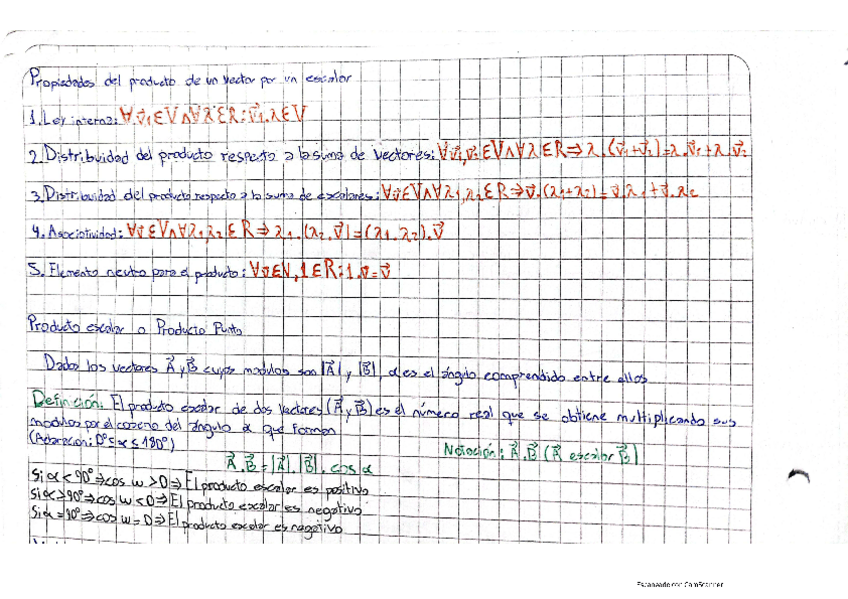 Propiedades del producto de un vector por un escalar
1. Ley interna: ∀v⃗₁∈V∧∀λ∈R: v⃗₁.λ∈V
2. Distribuidad del producto respecto a la suma de vectores: ∀v⃗₁,v⃗₂∈V∧∀λ∈R⇒λ.(v⃗₁+v⃗₂)=λ.v⃗₁+λ.v⃗₂
3. Distribuidad del producto respecto a la suma de escalares: ∀v⃗∈V∧∀λ₁,λ₂∈R⇒v⃗.(λ₁+λ₂)=v⃗.λ₁+v⃗.λ₂
4. Asociatividad: ∀v⃗∈V∧∀λ₁,λ₂∈R⇒λ₁.(λ₂.v⃗)=(λ₁.λ₂).v⃗
5. Elemento neutro para el producto: ∀v⃗∈V,1∈R:1.v⃗=v⃗
Producto escalar o Producto Punto
Dados los vectores A⃗ y B⃗ cuyos modulos son |A⃗| y |B⃗|, α es el ángulo comprendido entre ellos
Definición: El producto escalar de dos vectores (A⃗ y B⃗) es el número real que se obtiene multiplicando sus
modulos por el coseno del ángulo α que forman
(Aclaracion: 0°≤α≤180°)
Notación: A⃗.B⃗ (A⃗ escalar B⃗)
A⃗.B⃗=|A⃗|.|B⃗|.cos α
Si α<90°⇒cos w>0⇒El producto escalar es positivo
Si α>90°⇒cos w<0⇒El producto escalar es negativo
Si α=90°⇒cos w=0⇒El producto escalar es nagativo
Escaneado con CamScanner